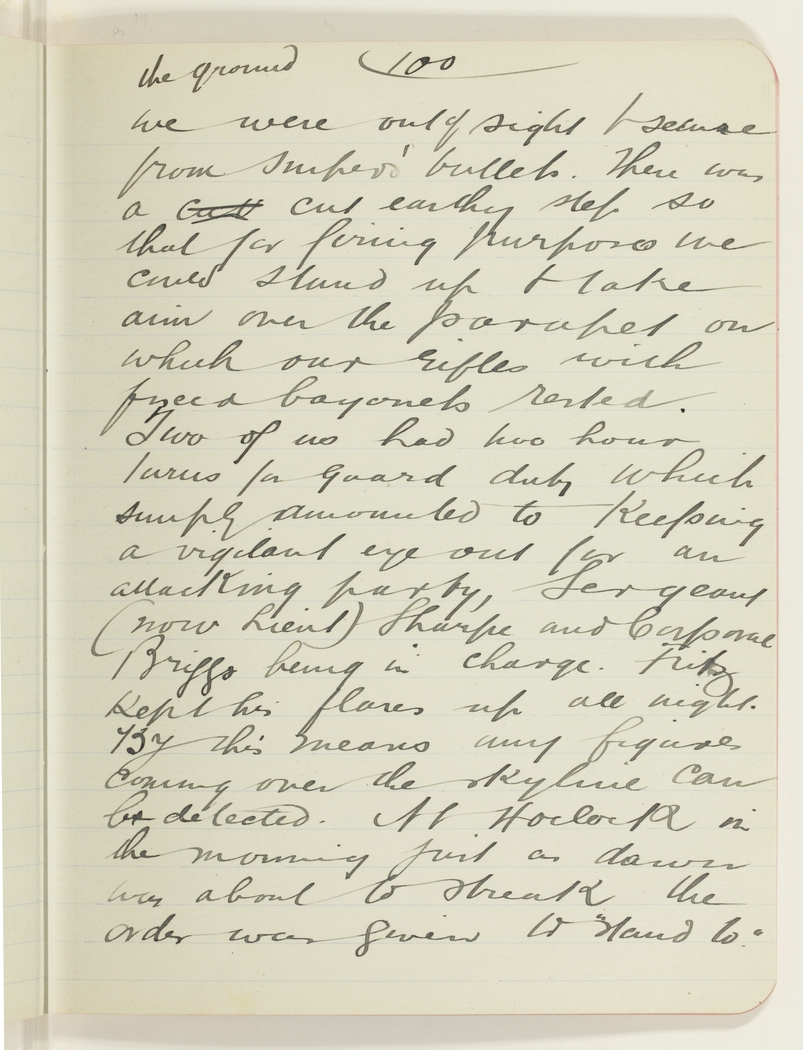 the ground 100
we were out of sight & secure
from snipers' bullets. There was
a cutt cut earthy step so
that for firing purposes we
could stand up & take
aim over the parapet on
which our rifles with
fixed bayonets rested.
Two of us had two hour
turns for guard duty which
simply amounted to Keeping
a vigilant eye out for an
attacking party, Sergeant
(now Lieut) Sharpe and Corporal
Briggs being in charge. Fritz
Kept his flares up all night.
By this means any figures
coming over the skyline can
be detected. At 4 oclock in
the morning just as dawn
was about to streak the
order was given to "stand to"